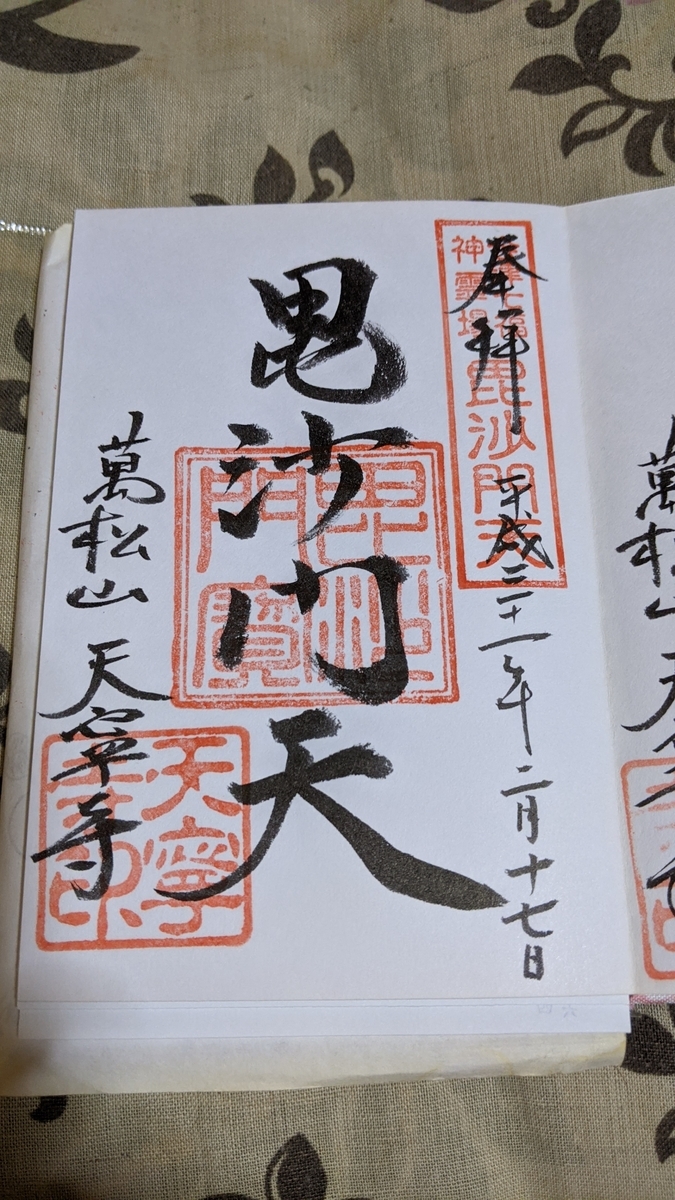 奉拝 平成三十一年二月十七日
七福
神霊場
毘沙門天
毘沙門天
萬松山 天寧寺
天寧
寺印
萬松山